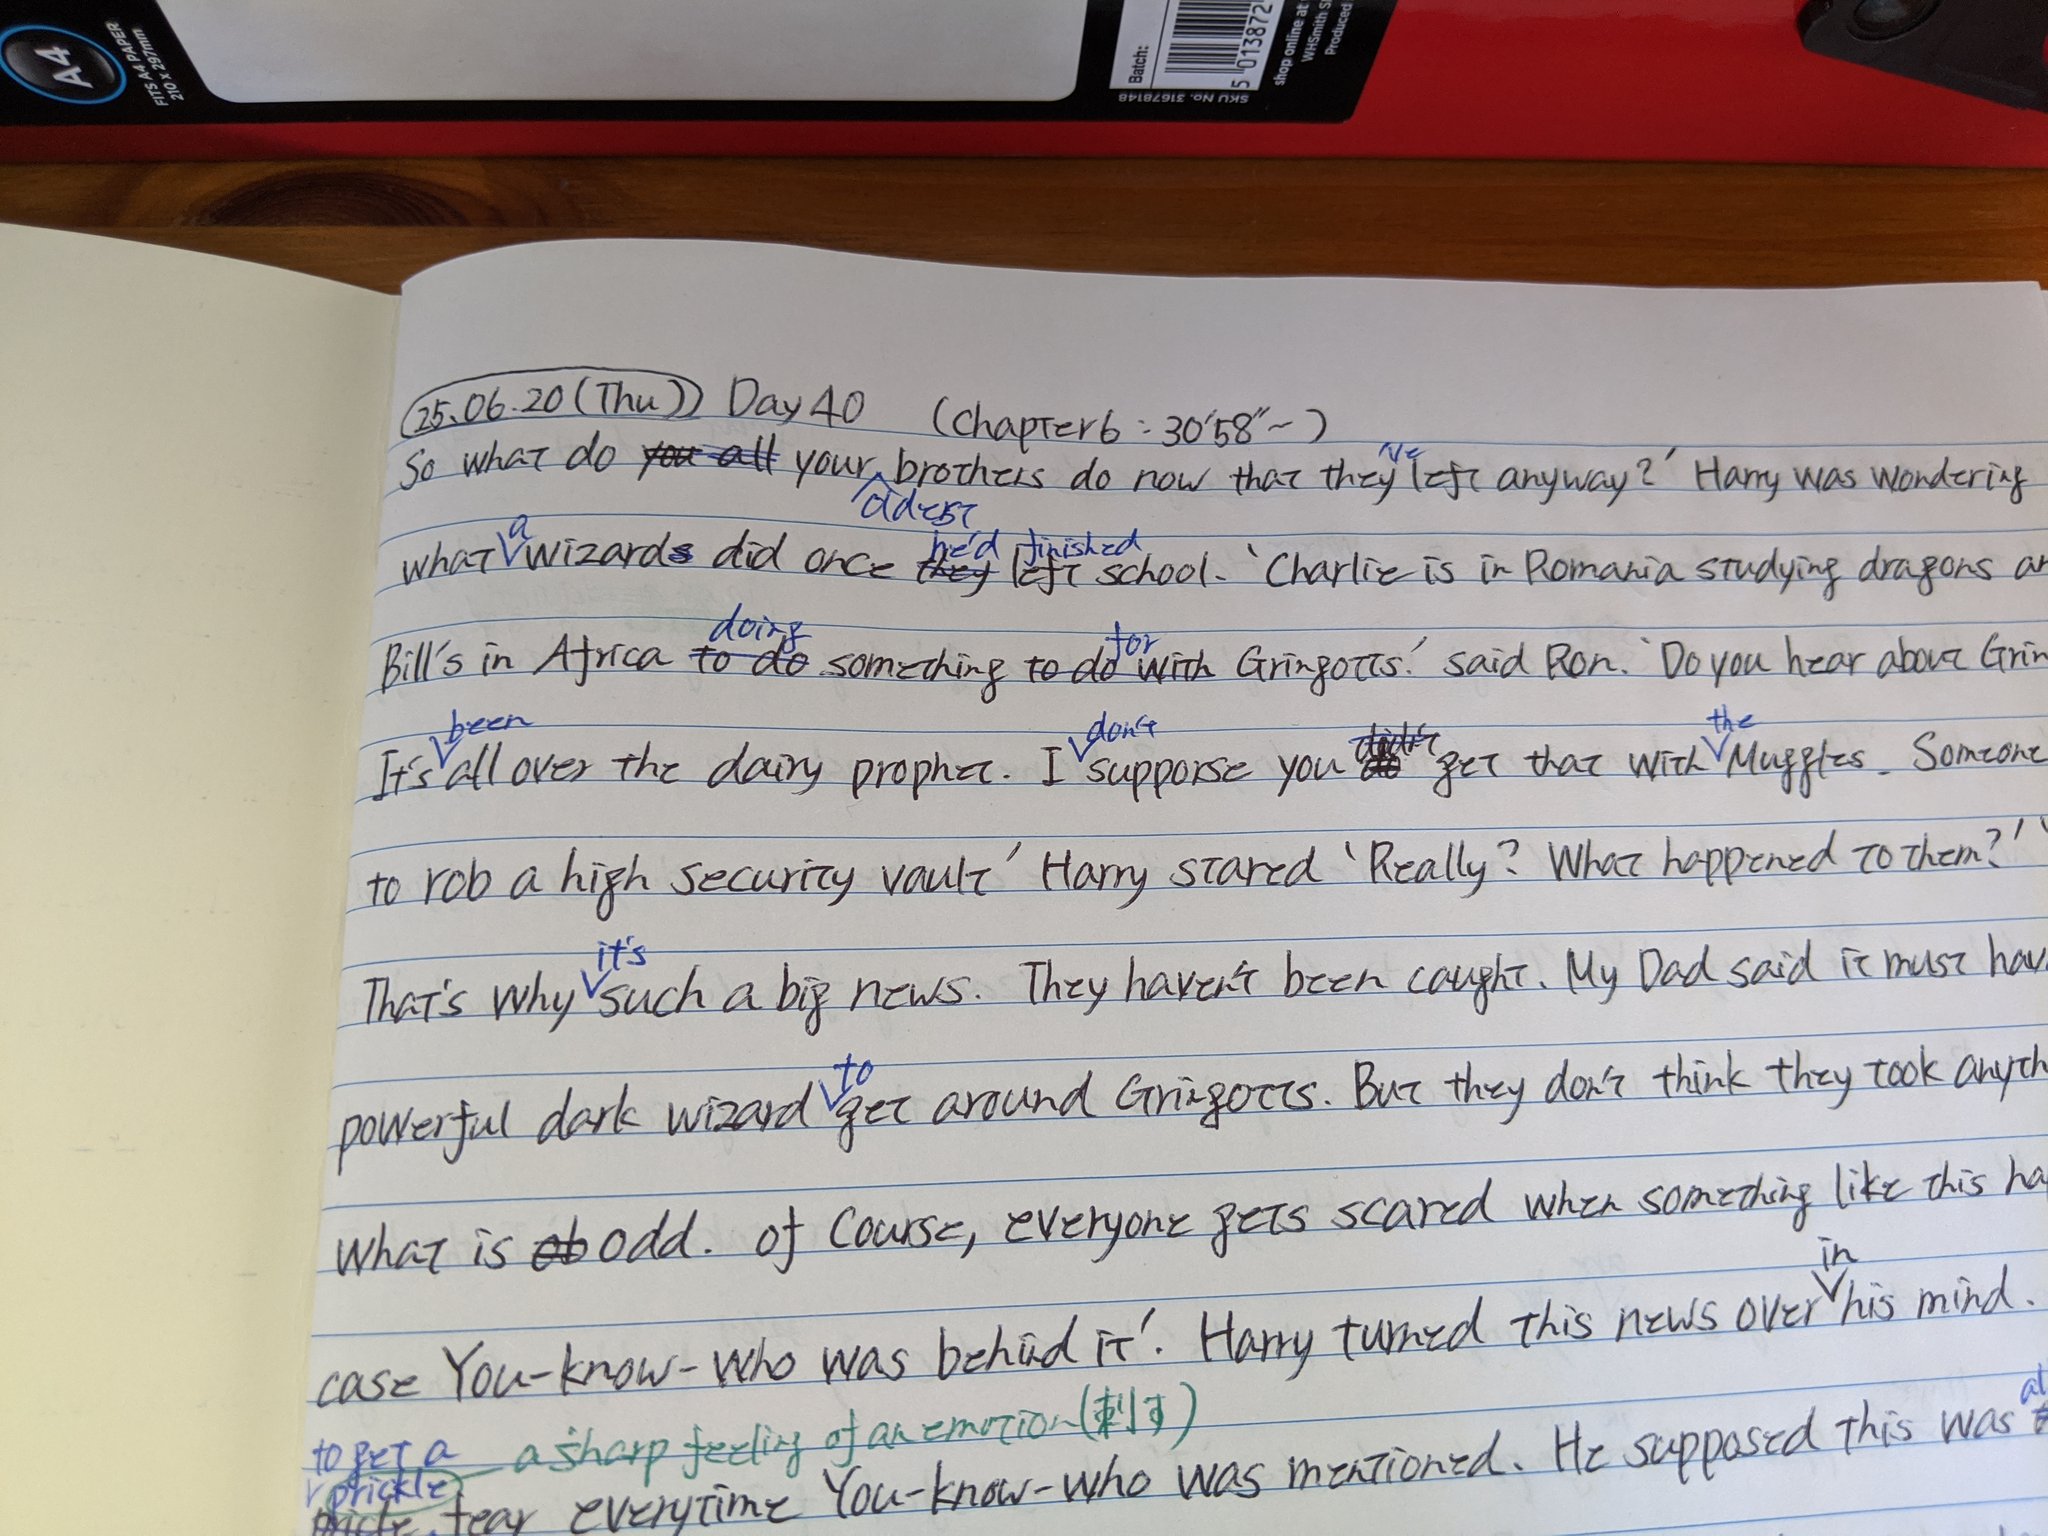 A4
FITS A4 PAPER
210 x 297mm
Batch:
5 013872
SKU No. 31678148
shop online at
WHSmith
Produced
25.06.20 (Thu) Day 40 (Chapter 6 : 30'58"~)
've
So what do you all your brothers do now that they left anyway?' Harry was wondering
oldest
a he'd finished
what wizards did once they left school. 'Charlie is in Romania studying dragons
doing for
Bill's in Africa to do something to do with Gringotts.' said Ron. 'Do you hear about
been don't didn't the
It's all over the dairy prophet. I supporse you do get that with Muggles. Someone
to rob a high security vault' Harry stared 'Really? What happened to them?'
it's
That's why such a big news. They haven't been caught. My Dad said it must
to
powerful dark wizard get around Gringotts. But they don't think they took
what is ob odd. Of Course, everyone gets scared when something like this
in
case You-know-who was behind it'. Harry turned this news over his mind.
to get a a sharp feeling of an emotion (刺す)
prickle
fear everytime You-know-who was mentioned. He supposed this was